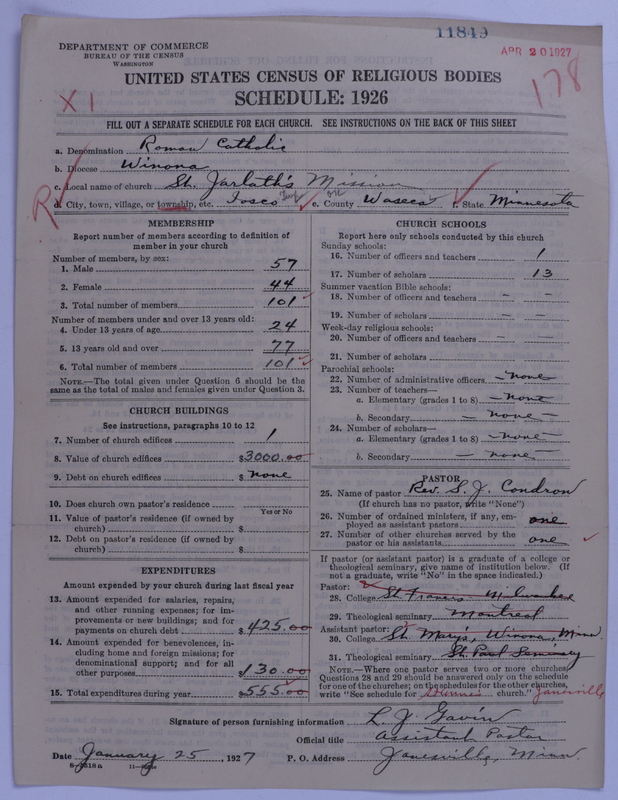 11849
APR 20 1927
DEPARTMENT OF COMMERCE
BUREAU OF THE CENSUS
WASHINGTON
178
UNITED STATES CENSUS OF RELIGIOUS BODIES
X1
SCHEDULE: 1926
FILL OUT A SEPARATE SCHEDULE FOR EACH CHURCH. SEE INSTRUCTIONS ON THE BACK OF THIS SHEET
a. Denomination Roman Catholic
b. Diocese Winona
c. Local name of church St. Jarlath's Mission
d. City, town, village, or township, etc. Iosco e. County Waseca f. State Minnesota
MEMBERSHIP
Report number of members according to definition of
member in your church
Number of members, by sex:
1. Male 57
2. Female 44
3. Total number of members 101
Number of members under and over 13 years old:
4. Under 13 years of age 24
5. 13 years old and over 77
6. Total number of members 101
NOTE.—The total given under Question 6 should be the
same as the total of males and females given under Question 3.
CHURCH BUILDINGS
See instructions, paragraphs 10 to 12
7. Number of church edifices 1
8. Value of church edifices $3000.00
9. Debt on church edifices $ none
10. Does church own pastor's residence
Yes or No
11. Value of pastor's residence (if owned by
church) $
12. Debt on pastor's residence (if owned by
church) $
EXPENDITURES
Amount expended by your church during last fiscal year
13. Amount expended for salaries, repairs,
and other running expenses; for im-
provements or new buildings; and for
payments on church debt $425.00
14. Amount expended for benevolences, in-
cluding home and foreign missions; for
denominational support; and for all
other purposes $130.00
15. Total expenditures during year $555.00
CHURCH SCHOOLS
Report here only schools conducted by this church
Sunday schools:
16. Number of officers and teachers 1
17. Number of scholars 13
Summer vacation Bible schools:
18. Number of officers and teachers – –
19. Number of scholars – –
Week-day religious schools:
20. Number of officers and teachers – –
21. Number of scholars
Parochial schools:
22. Number of administrative officers – none
23. Number of teachers—
a. Elementary (grades 1 to 8) – none
b. Secondary – none –
24. Number of scholars—
a. Elementary (grades 1 to 8) – none –
b. Secondary – none –
PASTOR
25. Name of pastor Rev. S. J. Condron
(If church has no pastor, write "None")
26. Number of ordained ministers, if any, em-
ployed as assistant pastors one
27. Number of other churches served by the
pastor or his assistants one
If pastor (or assistant pastor) is a graduate of a college or
theological seminary, give name of institution below. (If
not a graduate, write "No" in the space indicated.)
Pastor:
28. College St Francis Milwaukee
29. Theological seminary Montreal
Assistant pastor:
30. College St. Mary's, Winona, Minn.
31. Theological seminary St. Paul Seminary
NOTE.—Where one pastor serves two or more churches,
Questions 28 and 29 should be answered only on the schedule
for one of the churches; on the schedules for the other churches,
write "See schedule for church." Janesville
Signature of person furnishing information L. J. Gavin
Official title Assistant Pastor
Date January 25, 1927 P. O. Address Janesville, Minn.